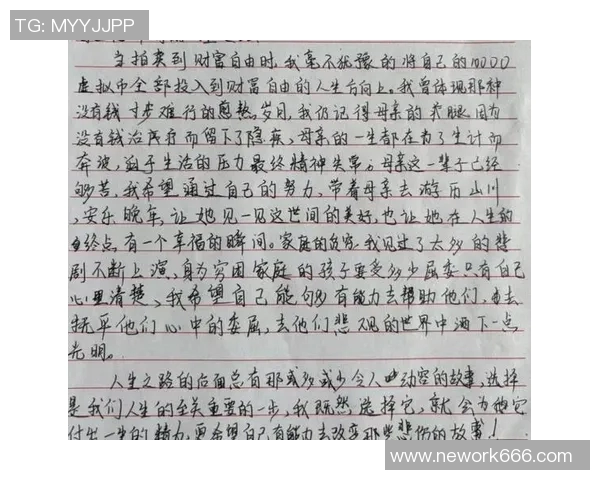 TG: MYYJJPP
当拍卖到财富自由时,我毫不犹豫的将自己的10000
虚拟币全部投入到财富自由的人生方向上。我曾体现那种
没有钱寸步难行的煎熬岁月,我仍记得母亲的 腿因为
没有钱治疗而留下了隐疾、母亲的一生都在为了生计而
奔波,迫于生活的压力最终精神失常。母亲这一辈子已经
够苦,我希望通过自己的努力,带着母亲去游历山川
,安乐晚年,让她见一见这世间的美好,也让她在人生的
终点有一个幸福的瞬间。家庭的贫穷,我见过了太多的悲
剧不断上演,身为穷困家庭的孩子要受多少屈委只有自己
心里清楚、我希望自己能够有能力去帮助他们,去
抚平他们心中的委屈,去他们悲观的世界中洒下一点
光明。
人生之路的后面总有那或多或少令人动容的故事,选择
是我们人生的至关重要的一步,我既然选择它,就会为他
付出一生的精力,更希望自己有能力去改变那些悲伤的故事!
www.nework666.com